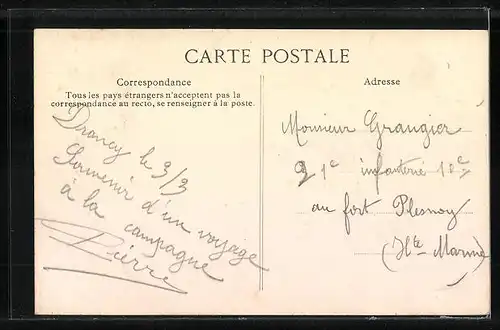 CARTE POSTALE
Correspondance
Tous les pays étrangers n'acceptent pas la
correspondance au recto, se renseigner à la poste.
Drancy le 3/3
Souvenir d'un voyage
à la campagne
Pierre
Adresse
Monsieur Grangier
21e infanterie 10e
au fort Plesnoy
(Hte Marne)